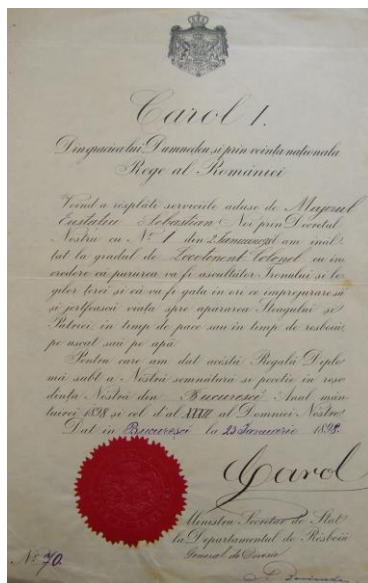 Carol I.
Din gracia lui Dumnedeu si prin vointa nationala
Rege al României
Voind a resplăti serviciile aduse de Majorul
Eustatiu Sebastian Noi prin Decretul
Nostru cu No 1 din 2 Ianuarie am inăl-
tat la gradul de Locotenent Colonel cu in-
credere că pururea va fi ascultător Tronului si le-
gilor terei si că va fi gata in ori ce impregiurare să
si jertfească viata spre apărarea Stégului si
Patriei in timp de pace sau in timp de resboiu
pe uscat sau pe apă
Pentru care am dat acéstă Regală Diplo-
mă subt a Nostră semnătură si pecetie in rese-
dinta Nostră din Bucuresci Anul mân-
tuirei 1898 si cel d'al XXXII al Domniei Nostre
Dat in Bucuresci la 23 Ianuarie 1898.
Carol
Ministru Secretar de Stat
la Departamentul de Resboiu
General de Divisie
No 70.